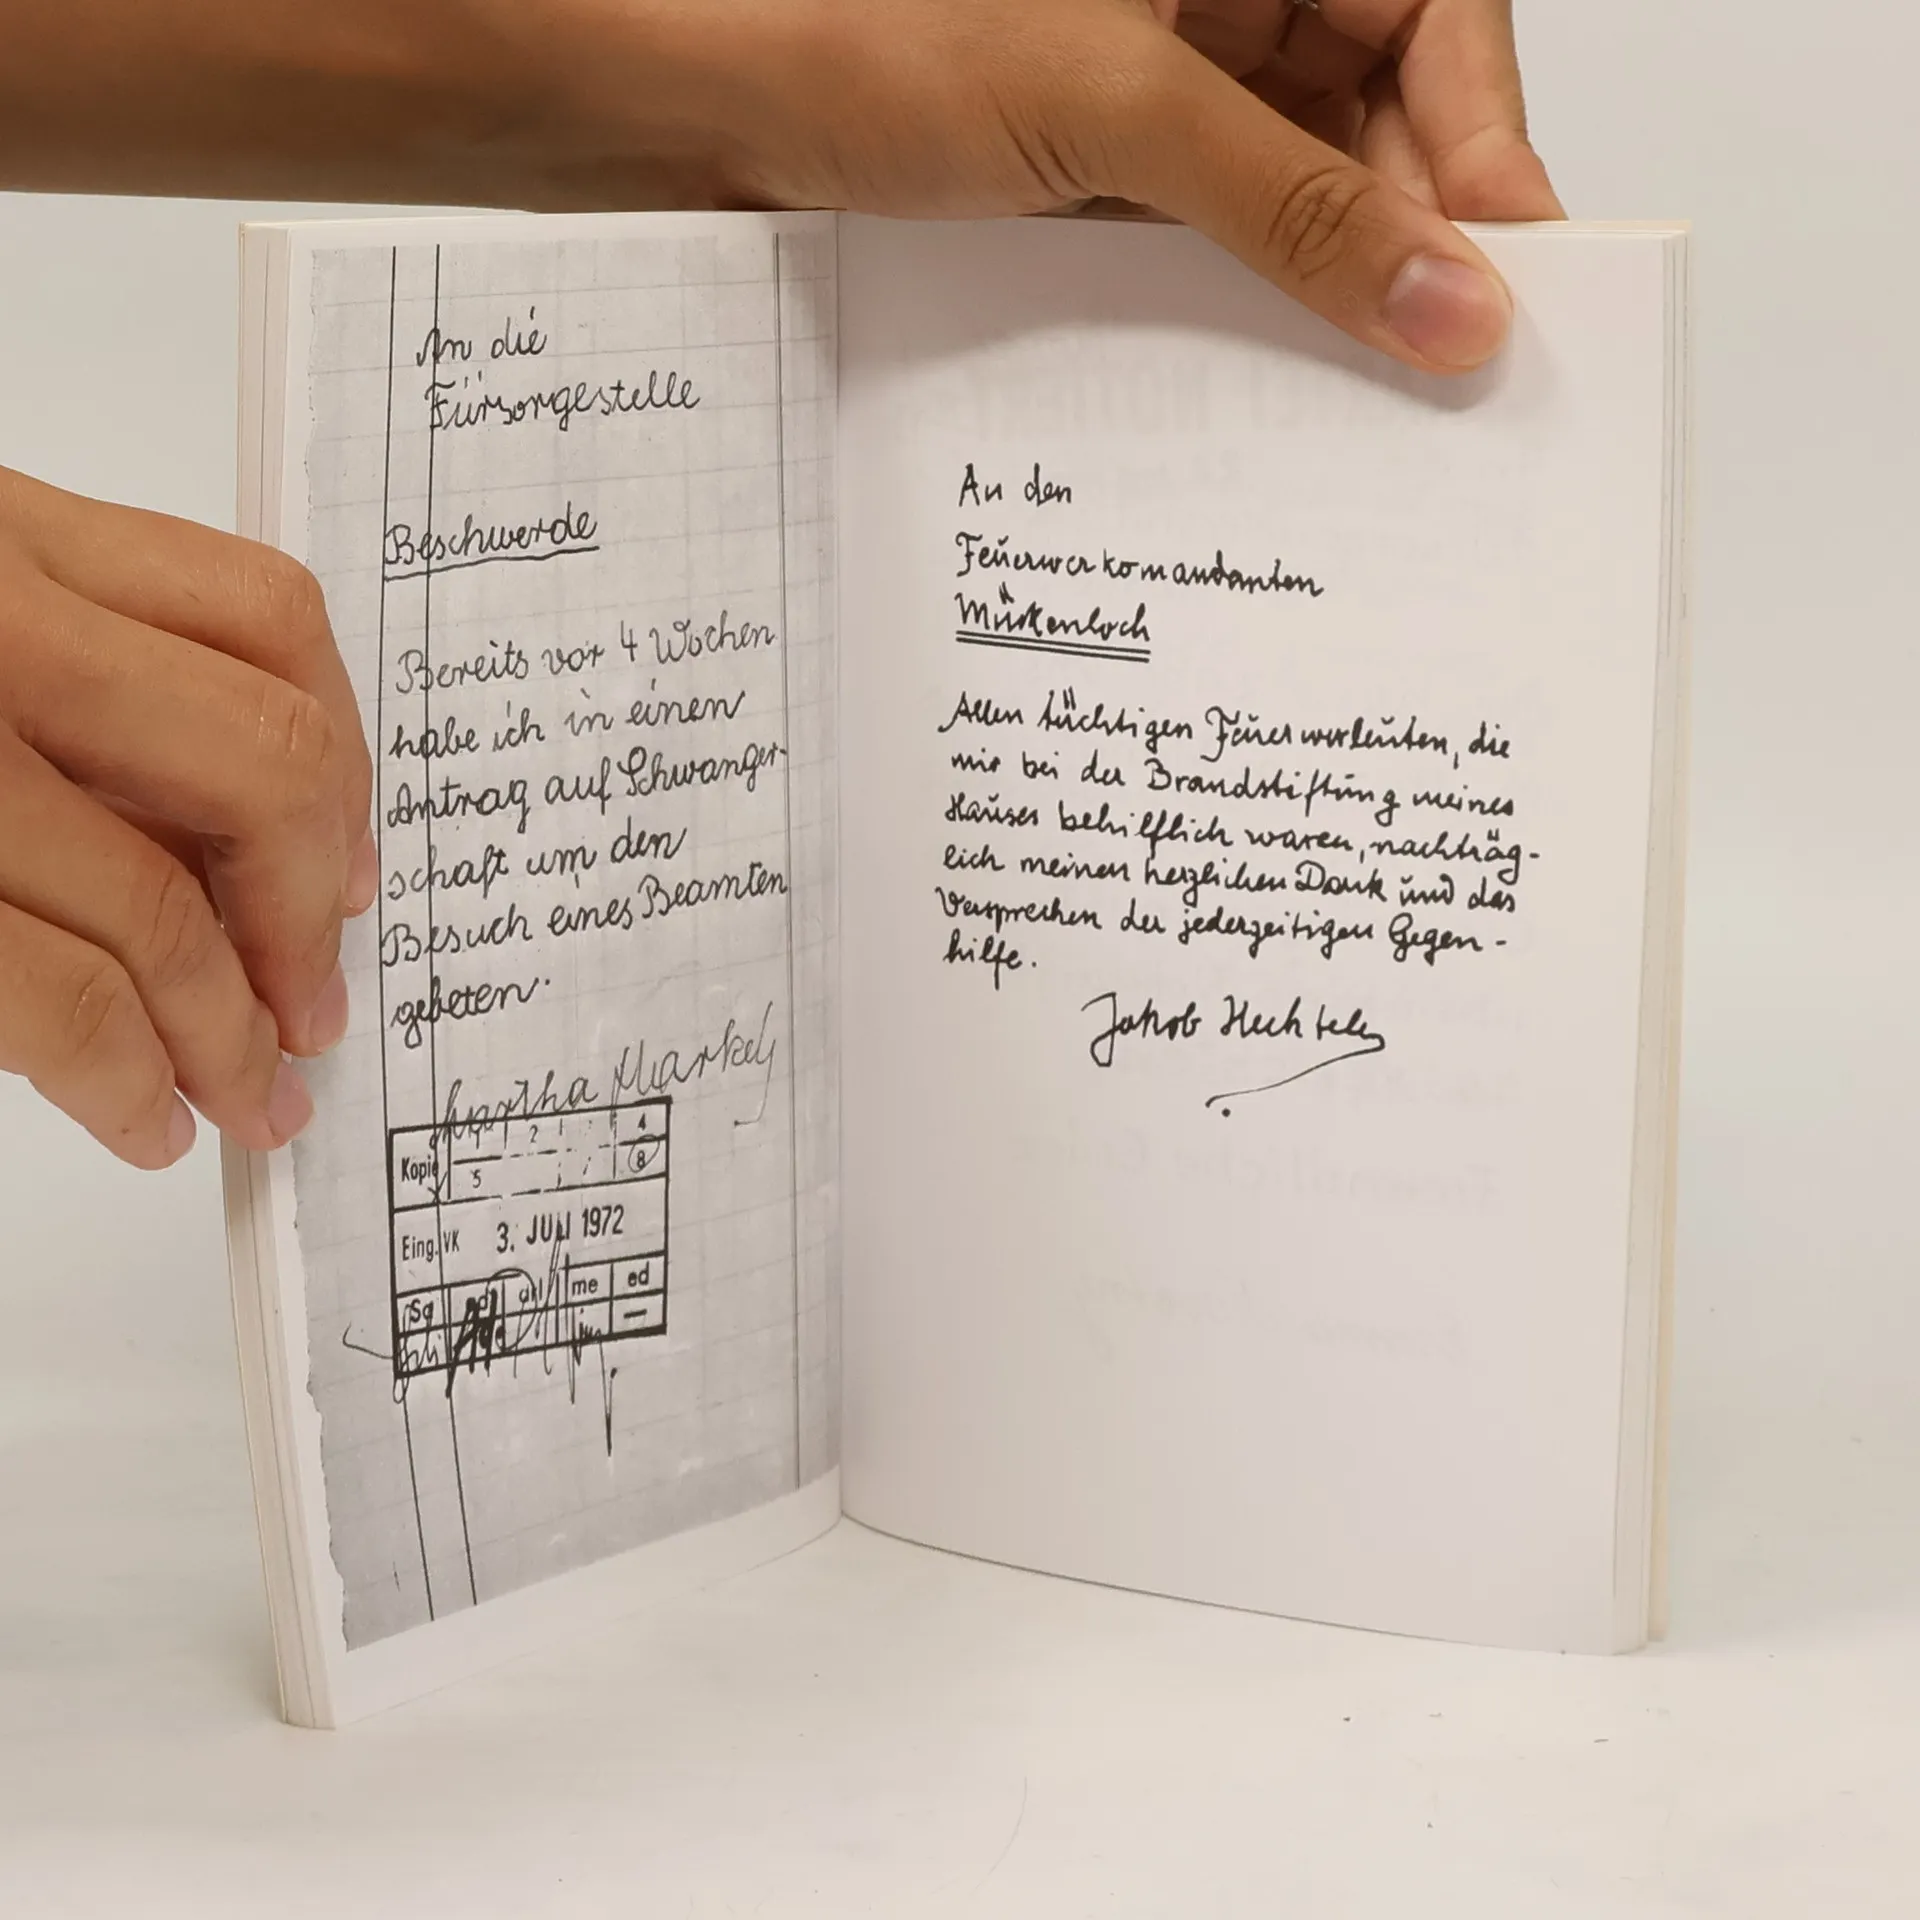 An die
Fürsorgestelle
Beschwerde
Bereits vor 4 Wochen
habe ich in einen
Antrag auf Schwanger-
schaft um den
Besuch eines Beamten
gebeten.
Martha Markel
Kopie 1 2 4
5 8
Eing. VK 3. JULI 1972
Sa me ed
An den
Feuerwerkomandanten
Mückenloch
Allen tüchtigen Feuerwerleuten, die
mir bei der Brandstiftung meines
Hauses behilflich waren, nachträg-
lich meinen herzlichen Dank und das
Versprechen der jederzeitigen Gegen-
hilfe.
Jakob Hechtele